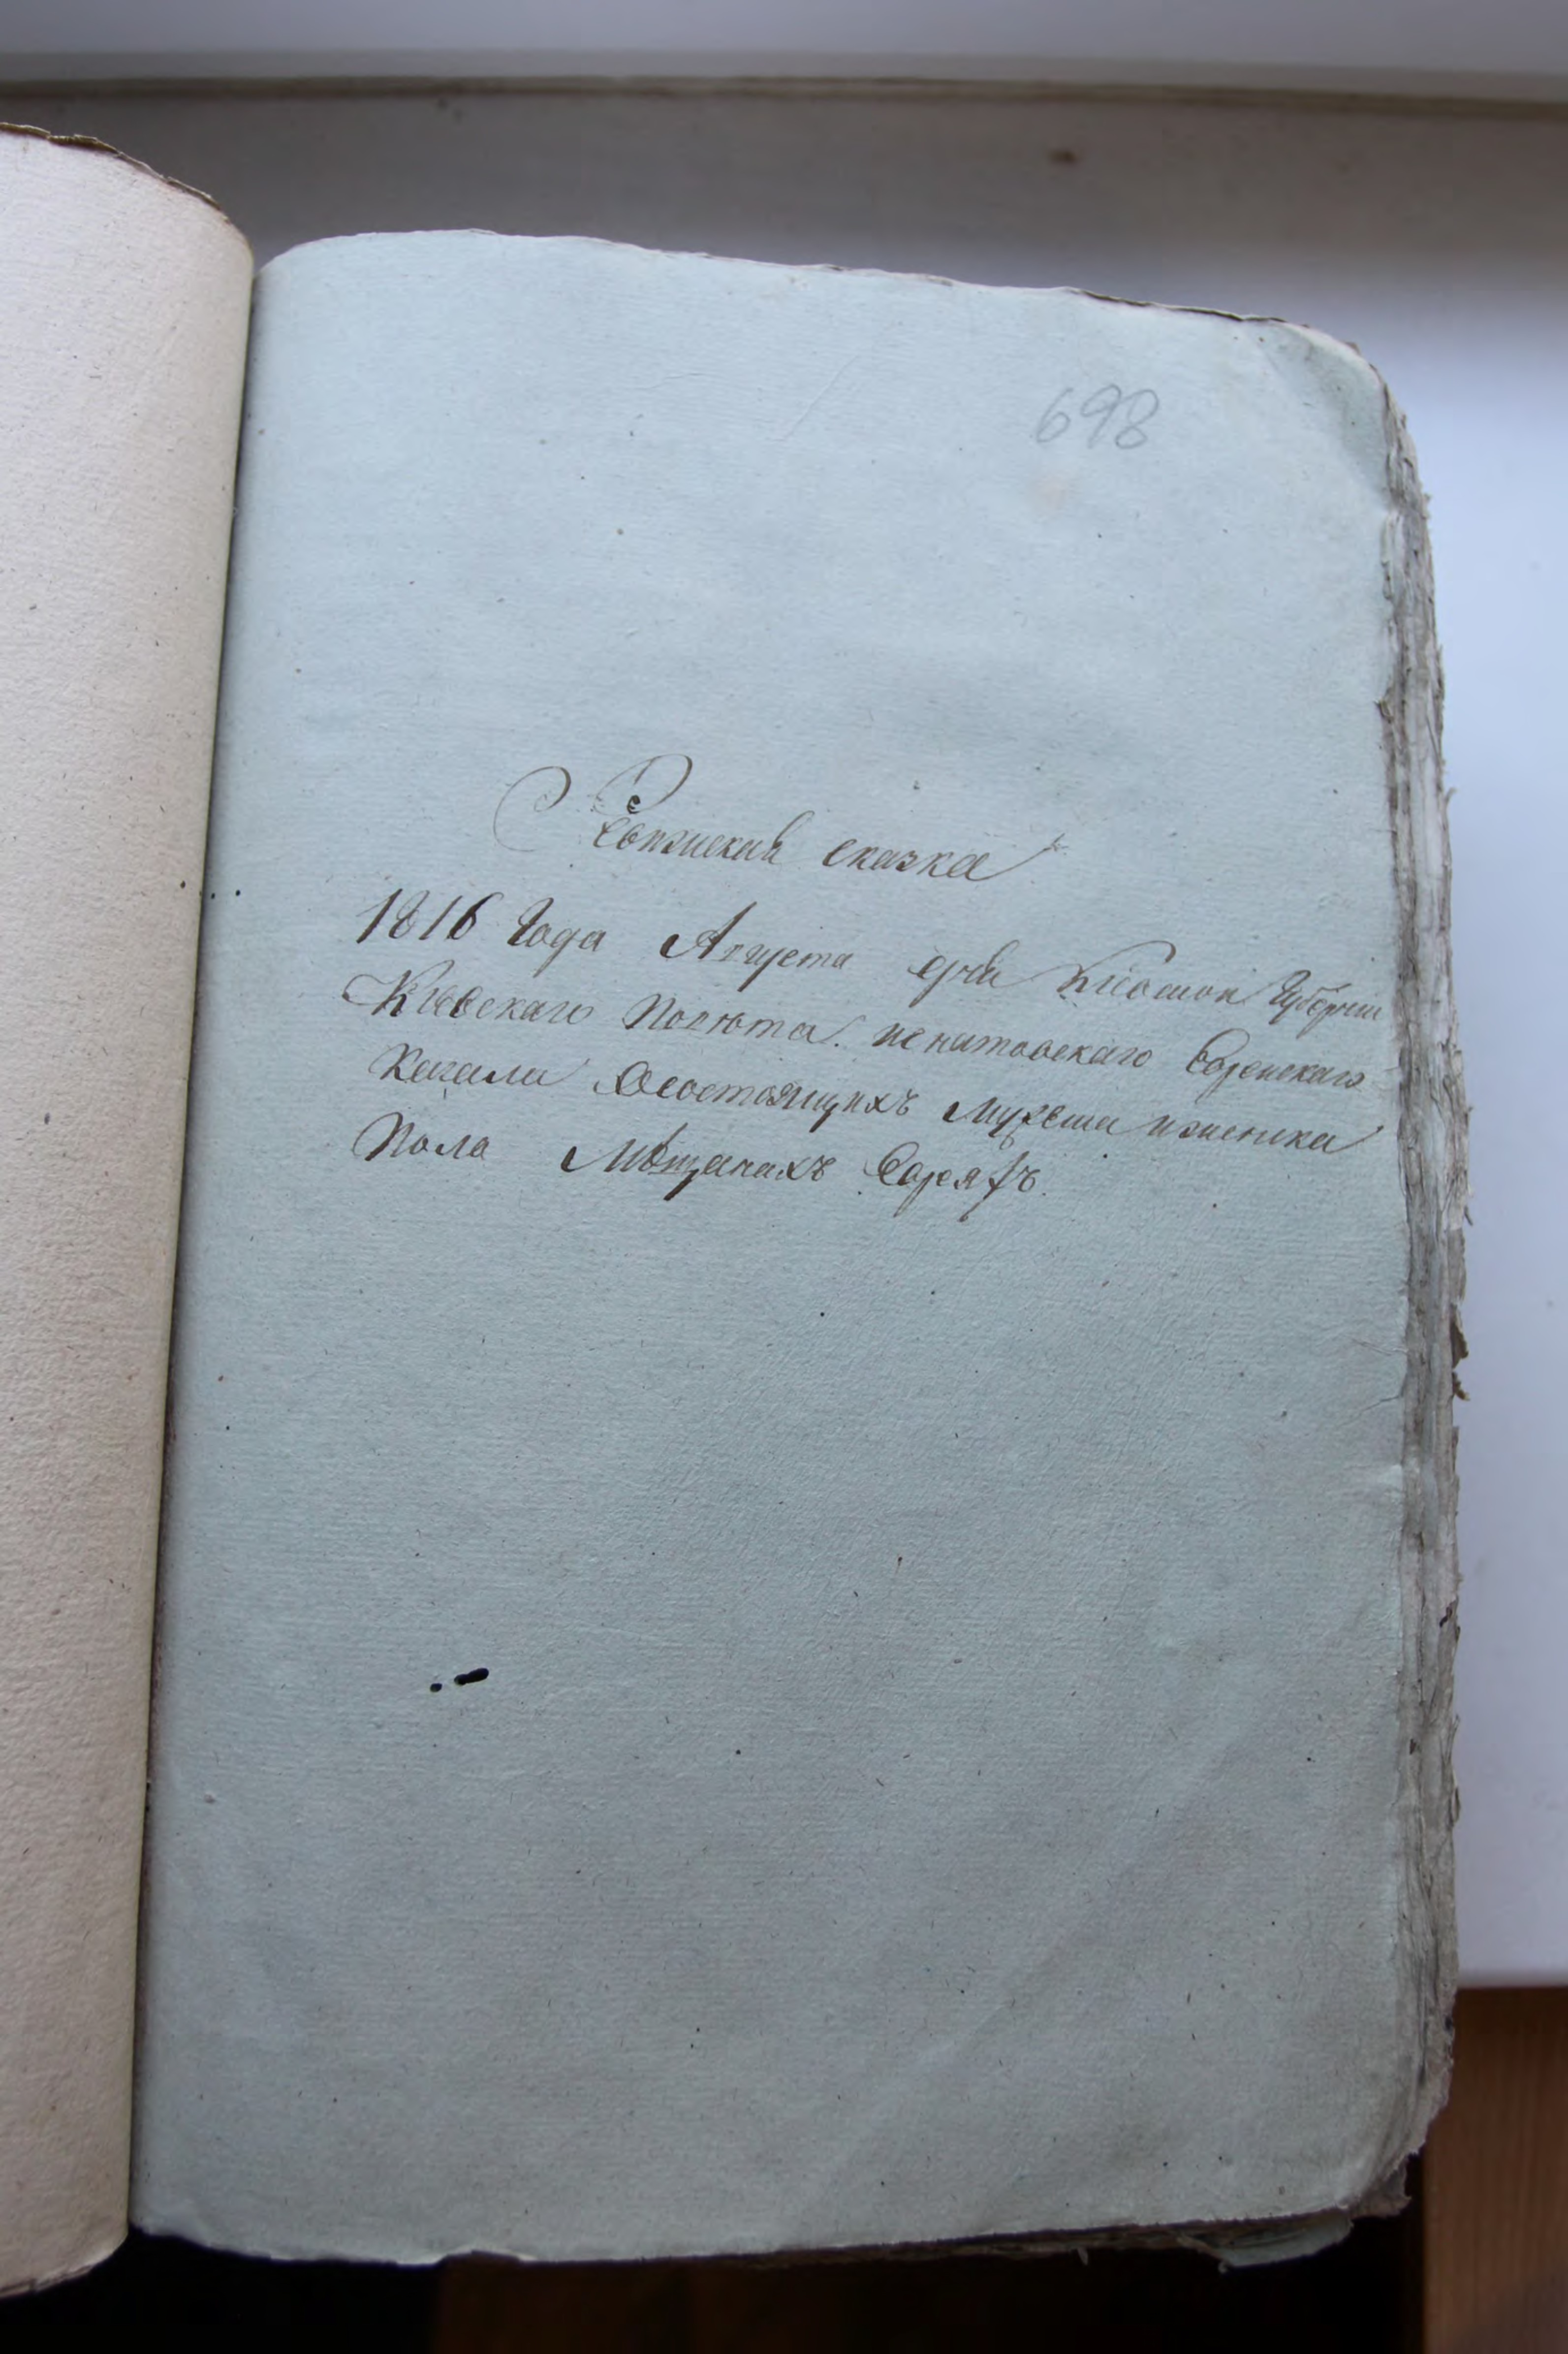 698
Ревизская сказка
1816 Года Августа дня Киевской Губернии
Киевскаго Повѣта Игнатовскаго Еврейскаго
Кагала Осостоящихъ Мужеска иженска
Пола Мѣщанахъ Евреяхъ.